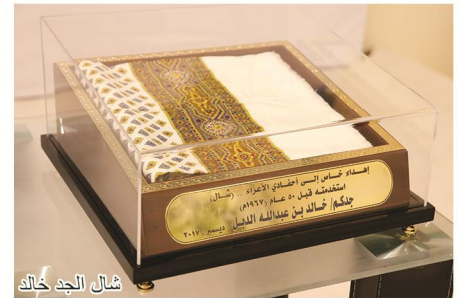 إهداء خاص إلى أحفادي الأعزاء (شال)
استخدمته قبل ٥٠ عام (١٩٦٧م)
جدكم/ خالد بن عبدالله الدبل
ديسمبر ٢٠١٧
شال الجد خالد